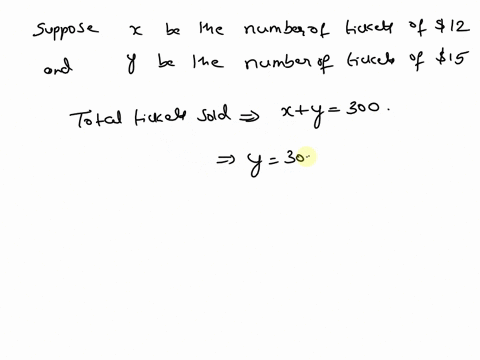 Suppose x be the number of tickets of $12
and y be the number of tickets of $15
Total tickets sold ⇒ x+y = 300.
⇒ y = 30